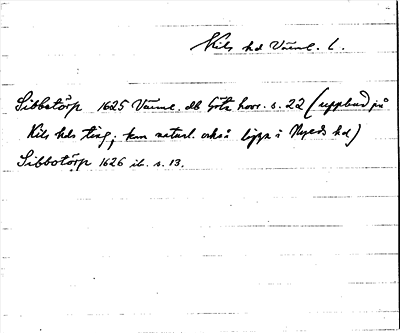 Kils hd Värml. l.
Sibbotörp 1625 Värml. db Göta hovr. s. 22 (uppbud på
Kils hds ting; kan naturl. också ligga i Nyeds hd)
Sibbotörp 1626 ib. s. 13.